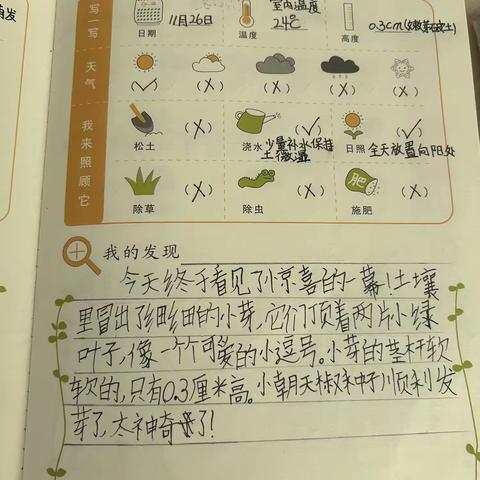 萌发
写一写
日期
11月26日
温度
室内温度
24℃
高度
0.3cm
天气
(✓)
(×)
(×)
(×)
(×)
我来照顾它
松土
(×)
浇水
(✓)
少量补水保持
土微湿
日照
(✓)
全天放置向阳处
除草
(×)
除虫
(×)
肥
施肥
(×)
我的发现
今天终于看见了惊喜的一幕!土壤
里冒出了细细的小芽,它们顶着两片小绿
叶子,像一个个可爱的小逗号。小芽的茎杆软
软的,只有0.3厘米高。小朝天椒种子顺利发
芽了,太神奇了!